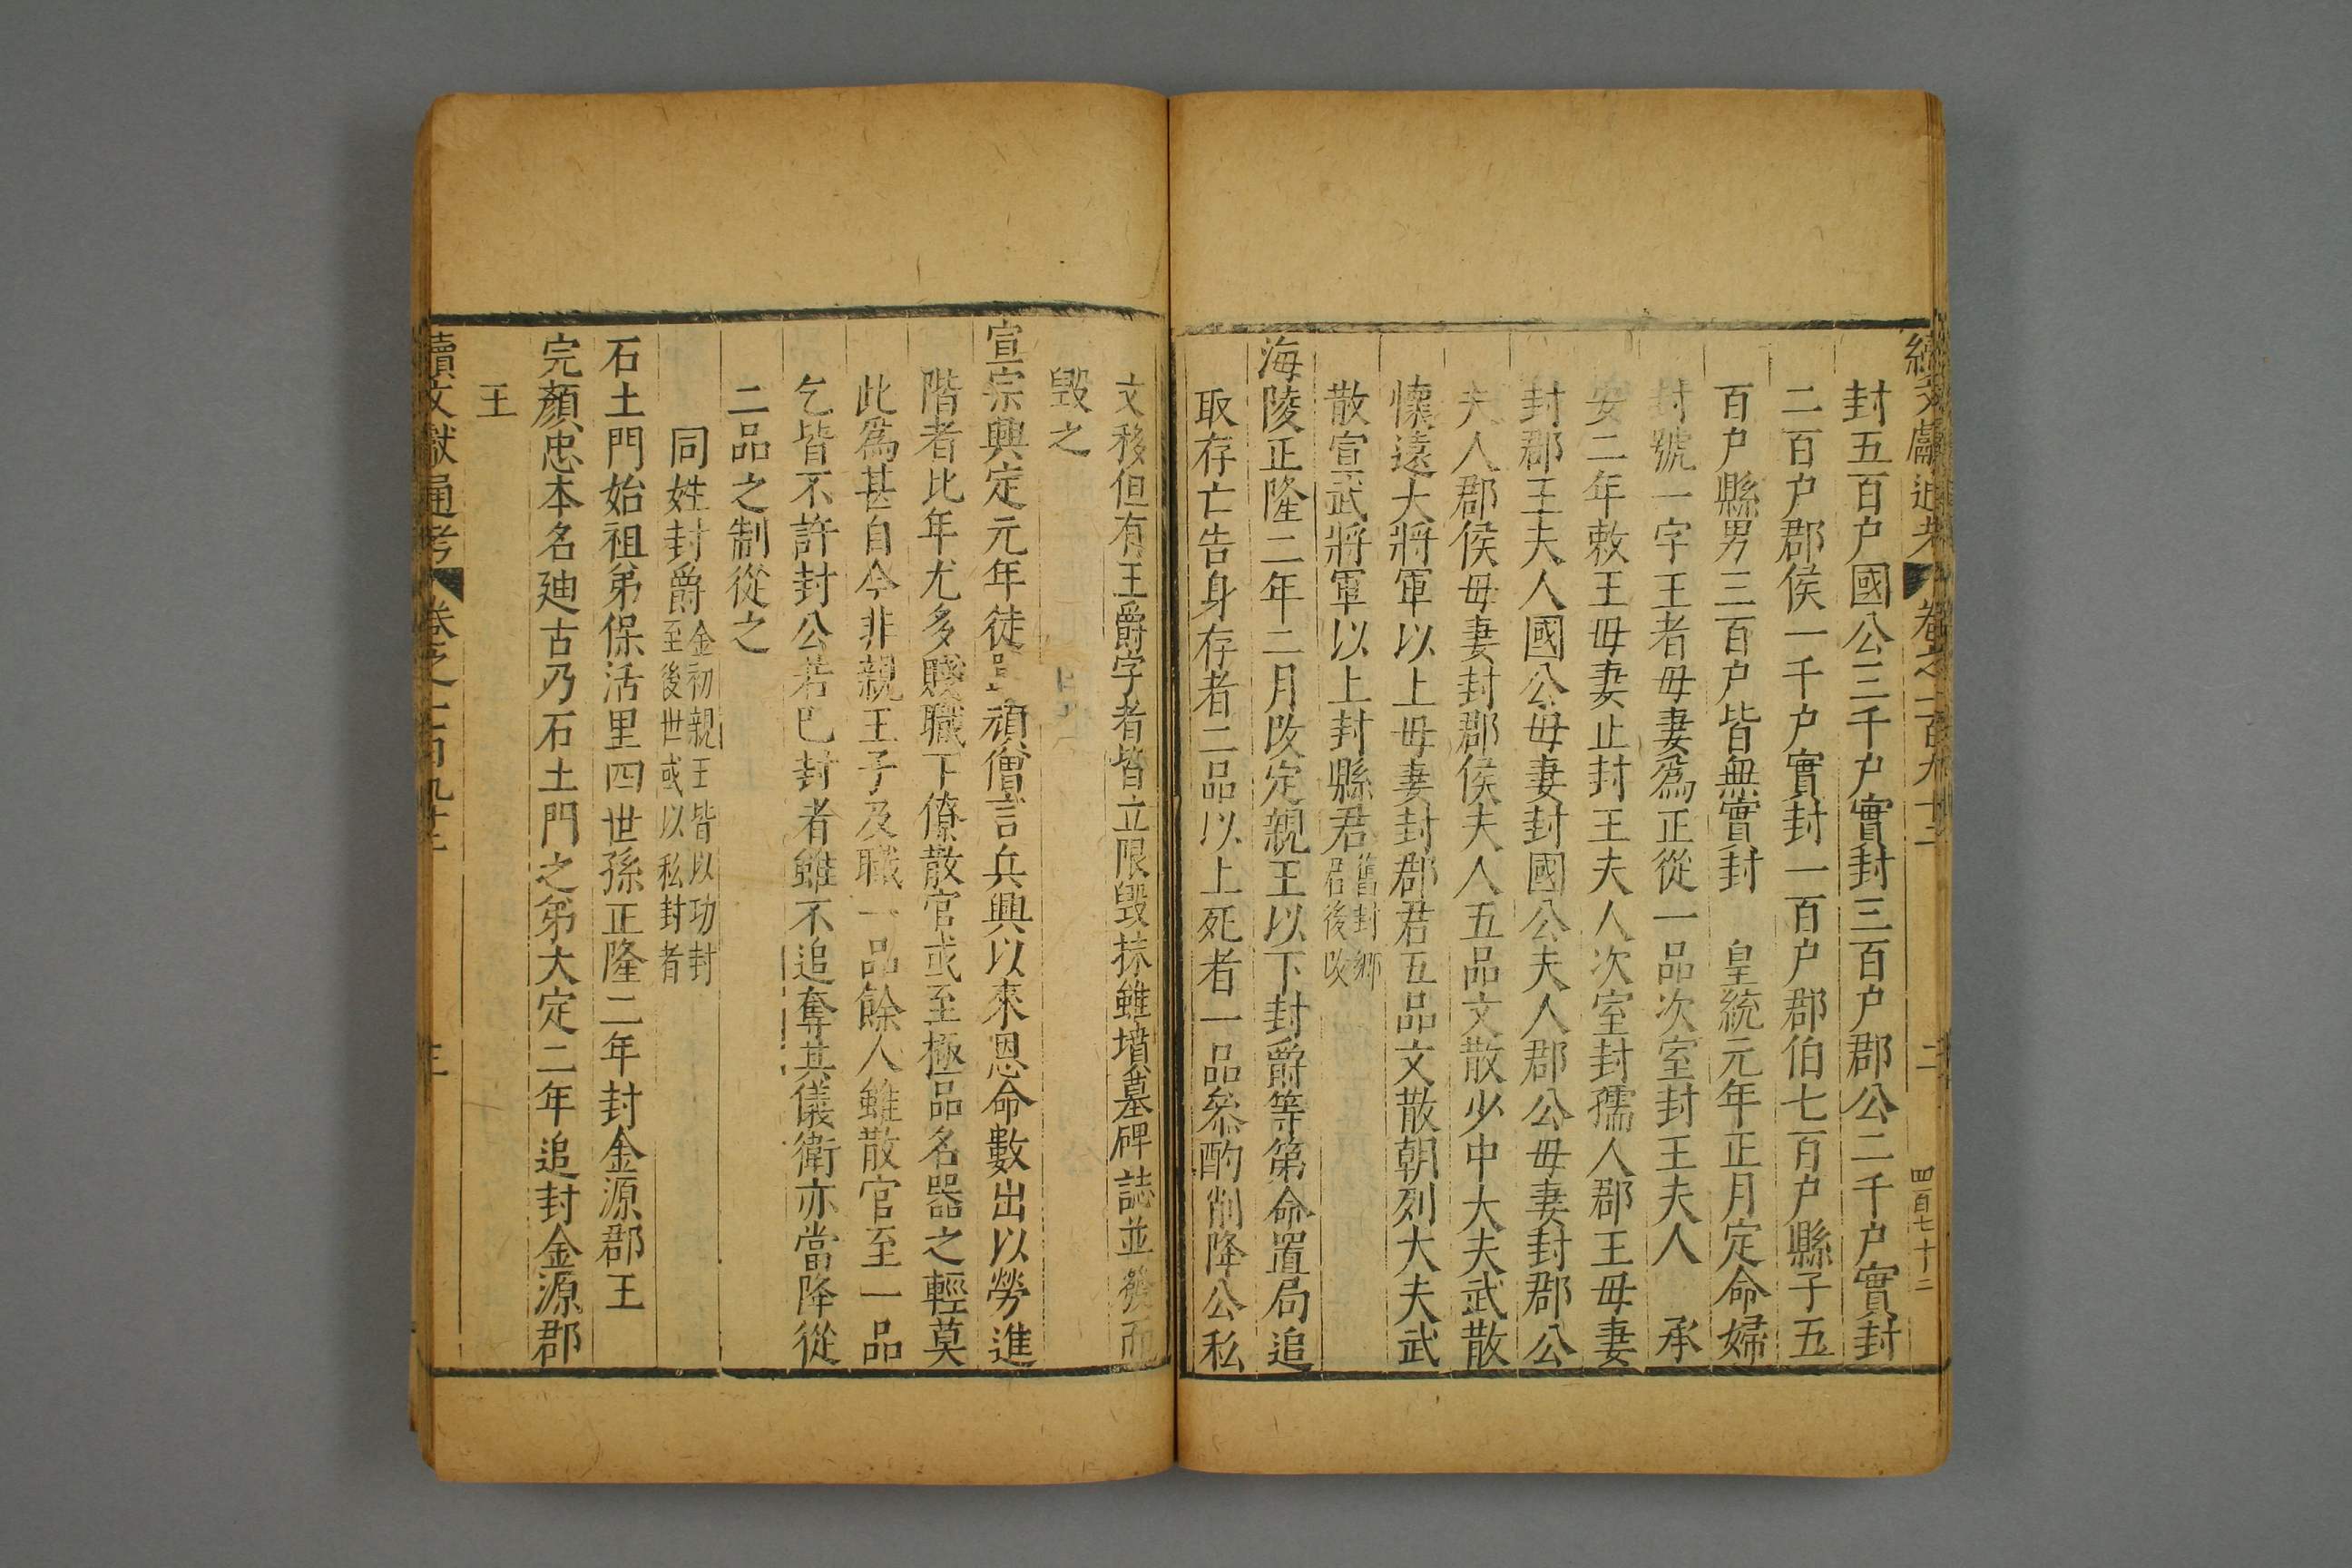 續文獻通考 卷之一百九十二 二 四百七十二
封五百户國公三千户實封三百户郡公二千户實封
二百户郡侯一千户實封一百户郡伯七百户縣子五
百户縣男三百户皆無實封 皇統元年正月定命婦
封號一字王者母妻爲正從一品次室封王夫人 承
安二年敕王母妻止封王夫人次室封孺人郡王母妻
封郡王夫人國公母妻封國公夫人郡公母妻封郡公
夫人郡侯母妻封郡侯夫人五品文散少中大夫武散
懷遠大將軍以上母妻封郡君五品文散朝列大夫武
散宣武將軍以上封縣君舊封鄉君後改
海陵正隆二年二月改定親王以下封爵等第命置局追
取存亡告身存者二品以上死者一品叅酌削降公私
文移但有王爵字者皆立限毁抹雖墳墓碑誌並發而
毁之
宣宗興定元年徒頑僧言兵興以來恩命數出以勞進
階者比年尤多賤職下僚散官或至極品名器之輕莫
此爲甚自今非親王子及職一品餘人雖散官至一品
乞皆不許封公若巳封者雖不追奪其儀衛亦當降從
二品之制從之
同姓封爵金初親王皆以功封至後世或以私封者
石土門始祖弟保活里四世孫正隆二年封金源郡王
完顏忠本名廸古乃石土門之弟大定二年追封金源郡
王
續文獻通考 卷之一百九十二 三